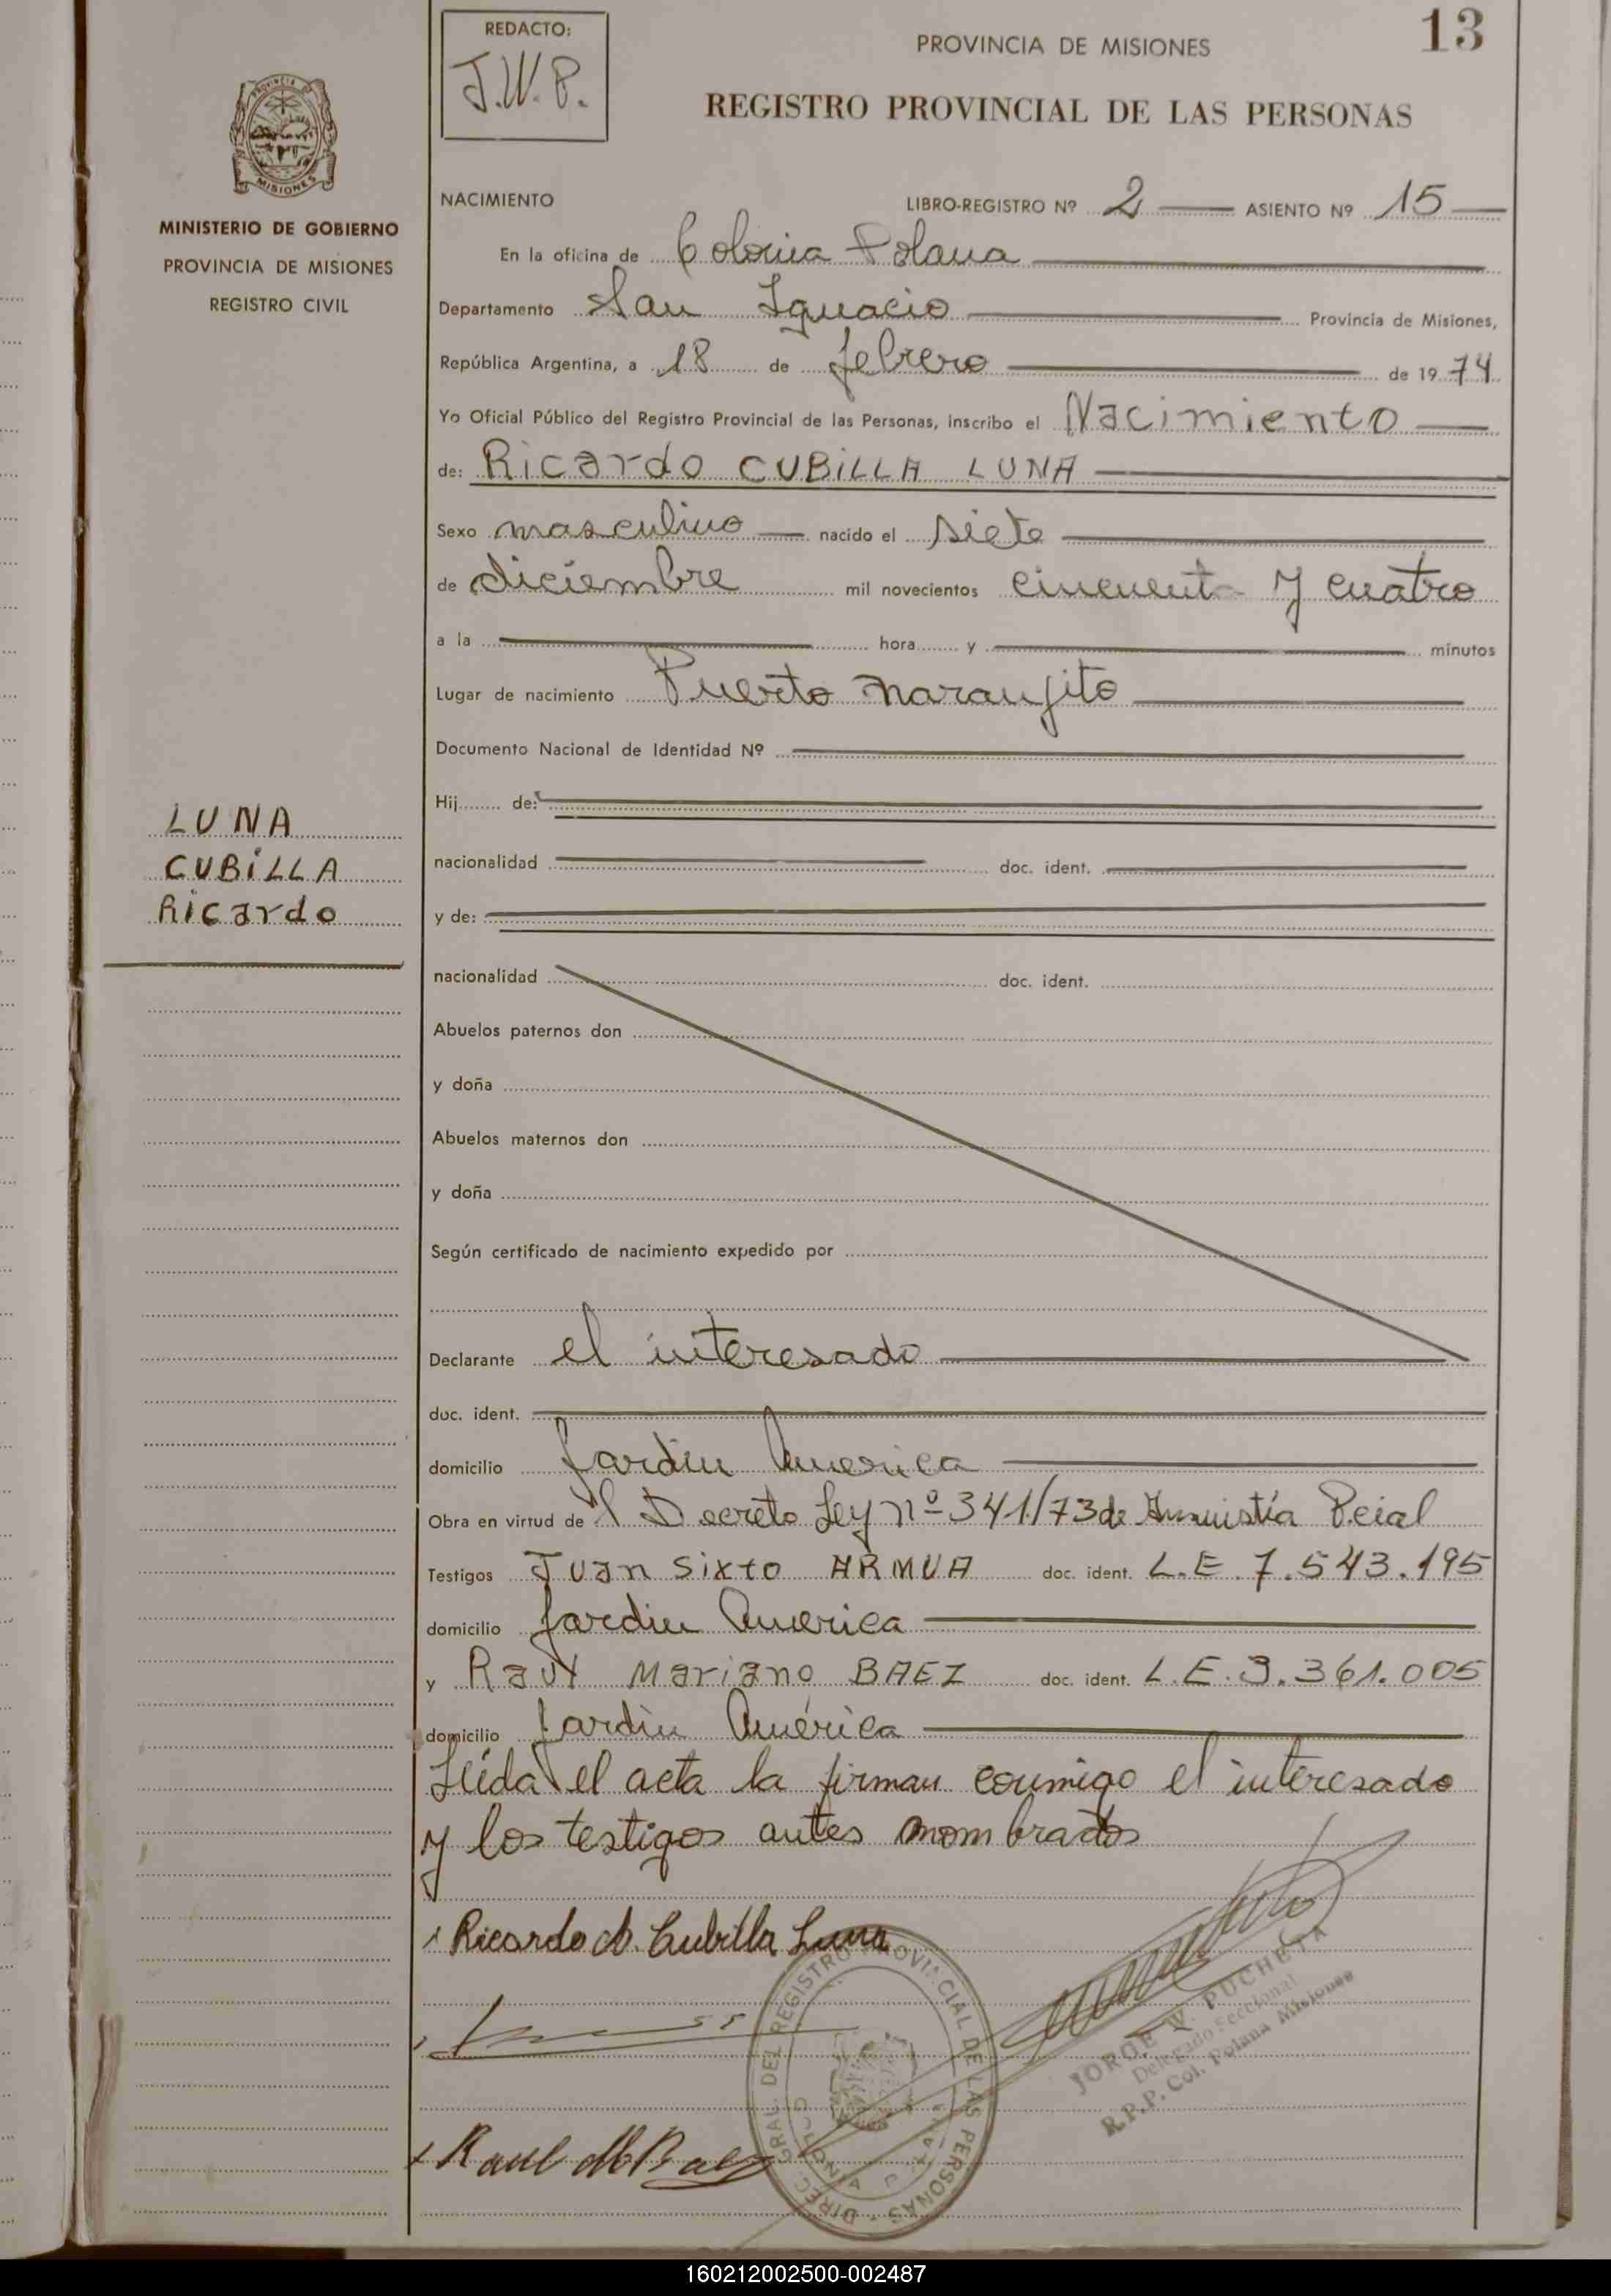 REDACTO:
J.W.P.
PROVINCIA DE MISIONES
13
REGISTRO PROVINCIAL DE LAS PERSONAS
MISIONES
MINISTERIO DE GOBIERNO
PROVINCIA DE MISIONES
REGISTRO CIVIL
NACIMIENTO LIBRO-REGISTRO Nº 2 ASIENTO Nº 15
En la oficina de Colonia Polana
Departamento San Ignacio Provincia de Misiones,
República Argentina, a 18 de febrero de 1974
Yo Oficial Público del Registro Provincial de las Personas, inscribo el Nacimiento
de: Ricardo CUBILLA LUNA
Sexo masculino nacido el siete
de diciembre mil novecientos cincuenta y cuatro
a la hora y minutos
Lugar de nacimiento Puerto naranjito
Documento Nacional de Identidad Nº
Hij de:
LUNA
CUBILLA
Ricardo
nacionalidad doc. ident.
y de:
nacionalidad doc. ident.
Abuelos paternos don
y doña
Abuelos maternos don
y doña
Según certificado de nacimiento expedido por
Declarante el interesado
doc. ident.
domicilio Jardin America
Obra en virtud de l Decreto Ley nº 341/73 de Amnistía P.cial
Testigos Juan Sixto ARMUA doc. ident. L.E 7.543.195
domicilio Jardin America
y Raul Mariano BAEZ doc. ident. L.E. 3.361.005
domicilio Jardin América
Leída el acta la firman conmigo el interesado
y los testigos antes nombrados
Ricardo A. Cubilla Luna
Raul M Baez
DIREC. GRAL. DEL REGISTRO PROVINCIAL DE LAS PERSONAS
COLONIA POLANA
JORGE W. PUCHETA
Delegado Seccional
R.P.P. Col. Polana Misiones
160212002500-002487